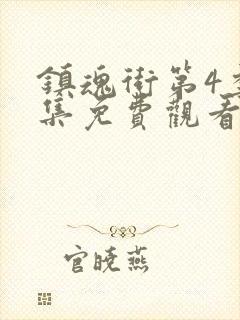 鎮魂街第4季
集免費觀看
官曉燕